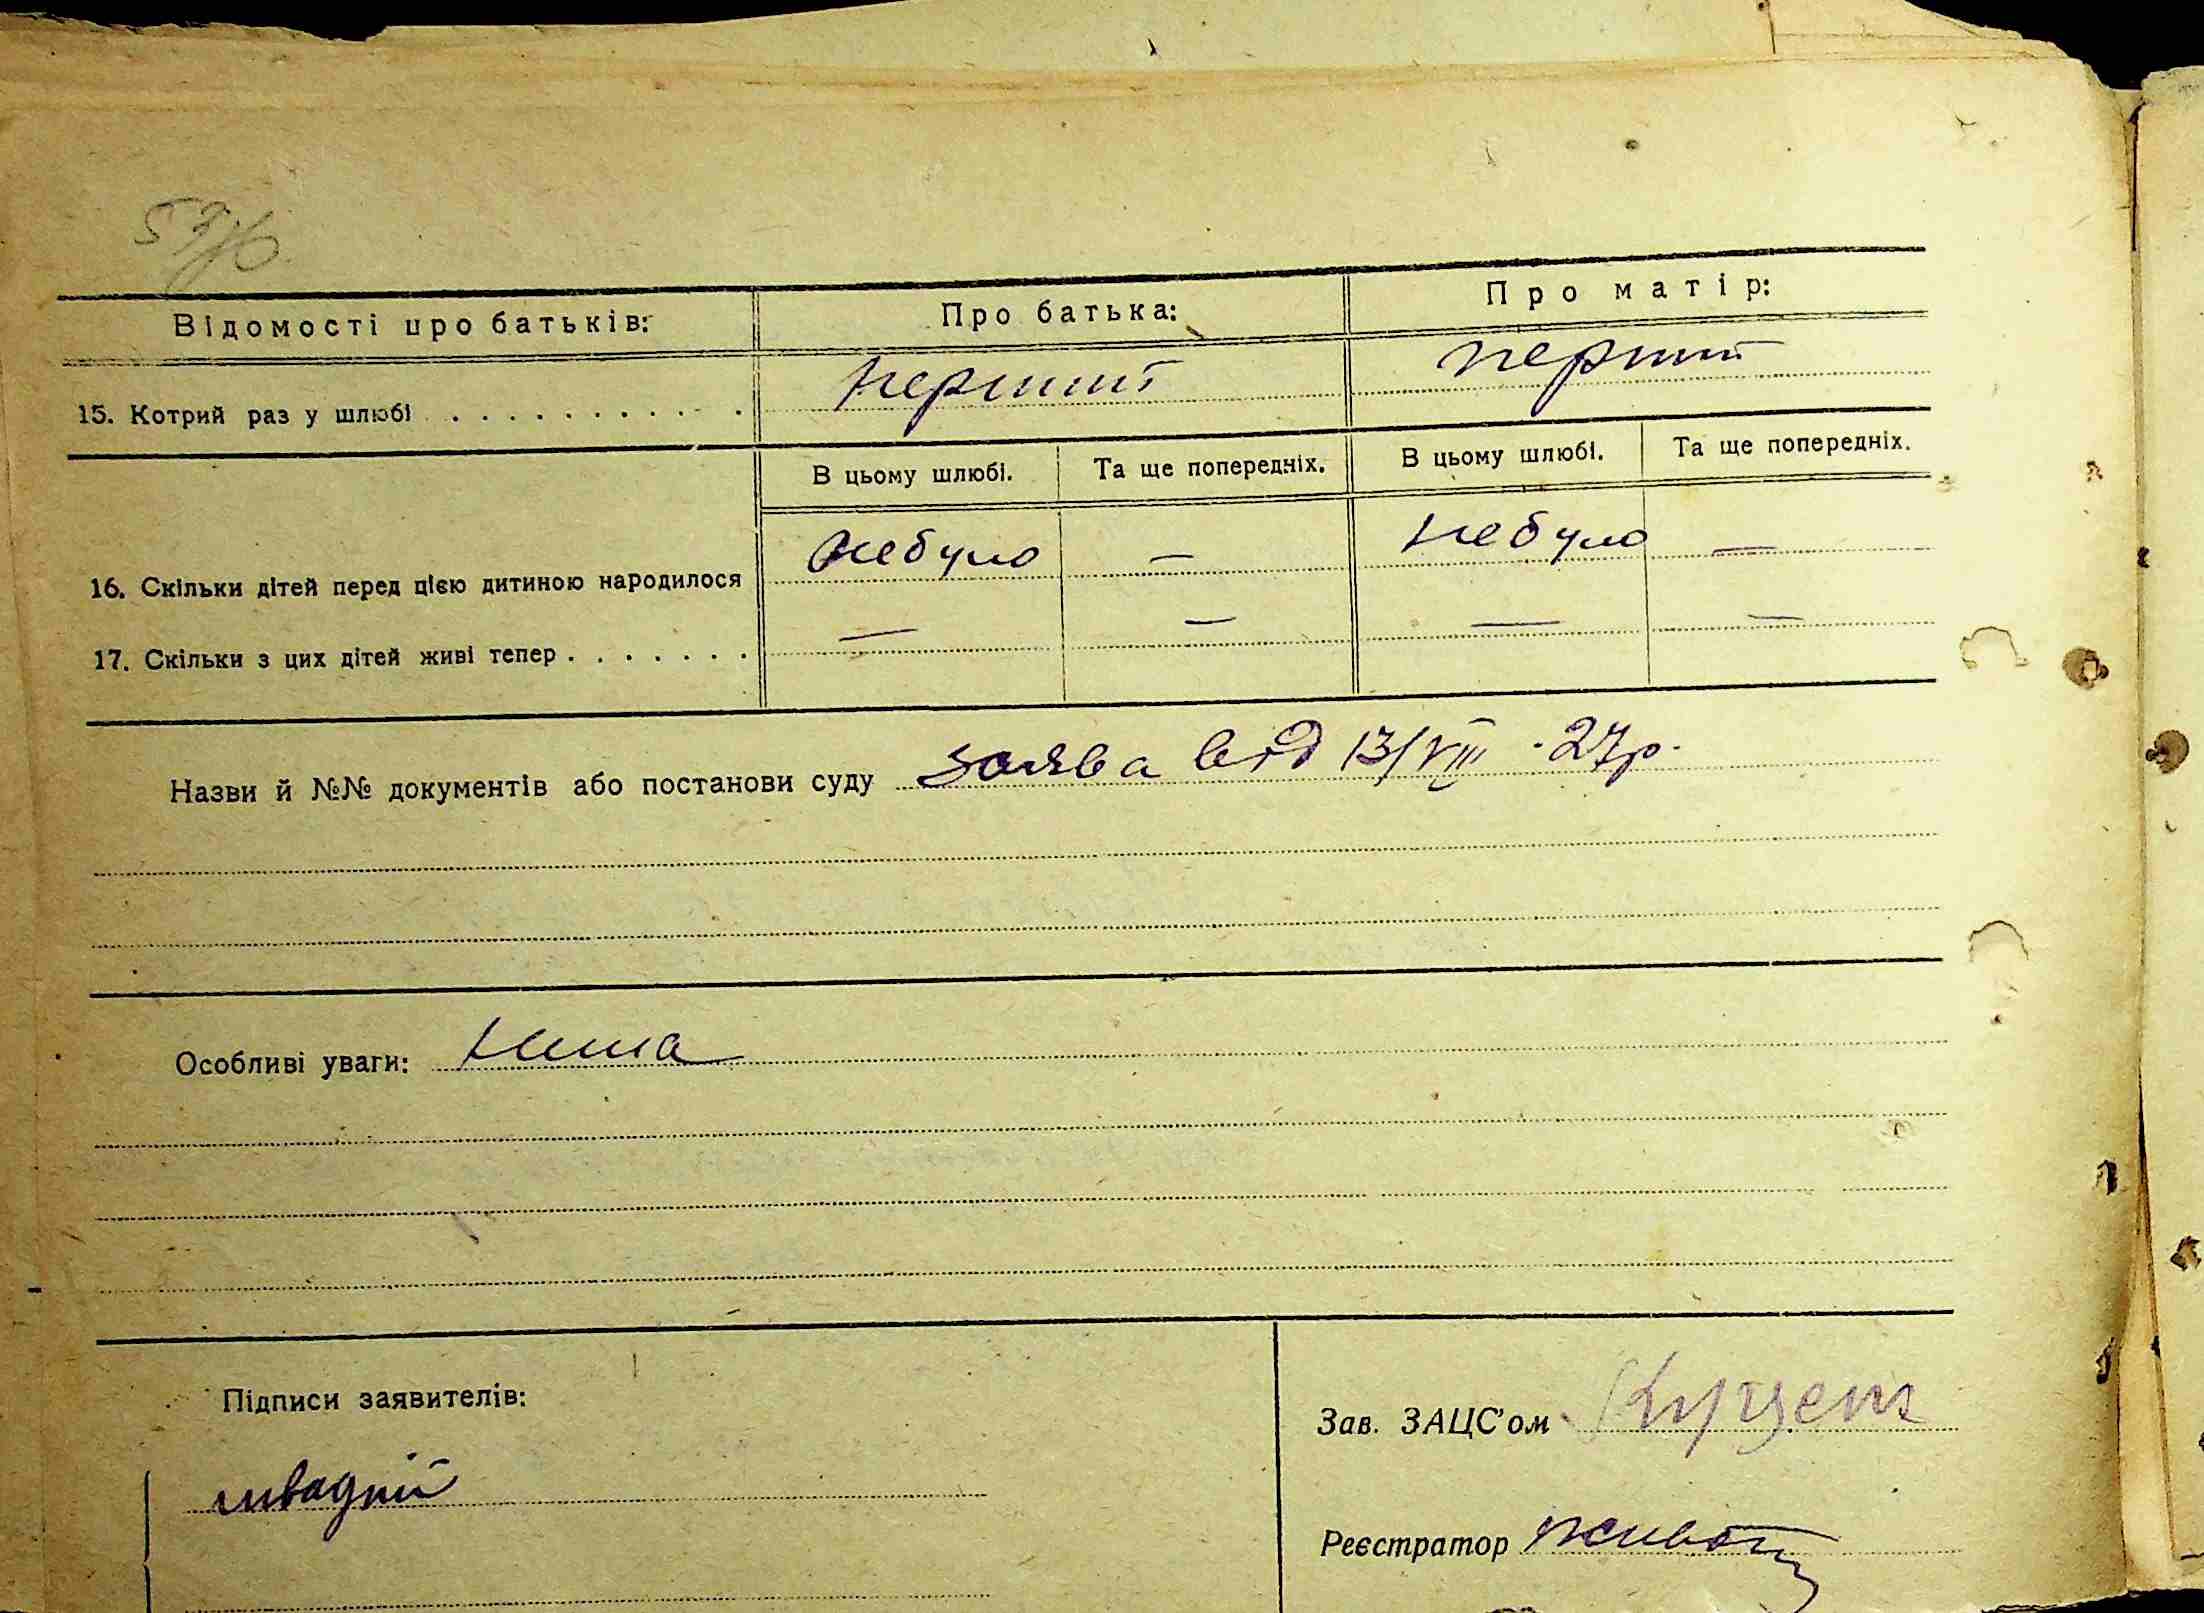 Відомості про батьків: Про батька: Про матір:
15. Котрий раз у шлюбі . . . . . . . . . . . перший перший
В цьому шлюбі. Та ще попередніх. В цьому шлюбі. Та ще попередніх.
16. Скільки дітей перед цією дитиною народилося небуло — небуло —
17. Скільки з цих дітей живі тепер . . . . . . . — — — —
Назви й №№ документів або постанови суду заява від 13/VIII - 27р.
Особливі уваги: нема
Підписи заявителів:
Зав. ЗАЦС'ом
Реєстратор